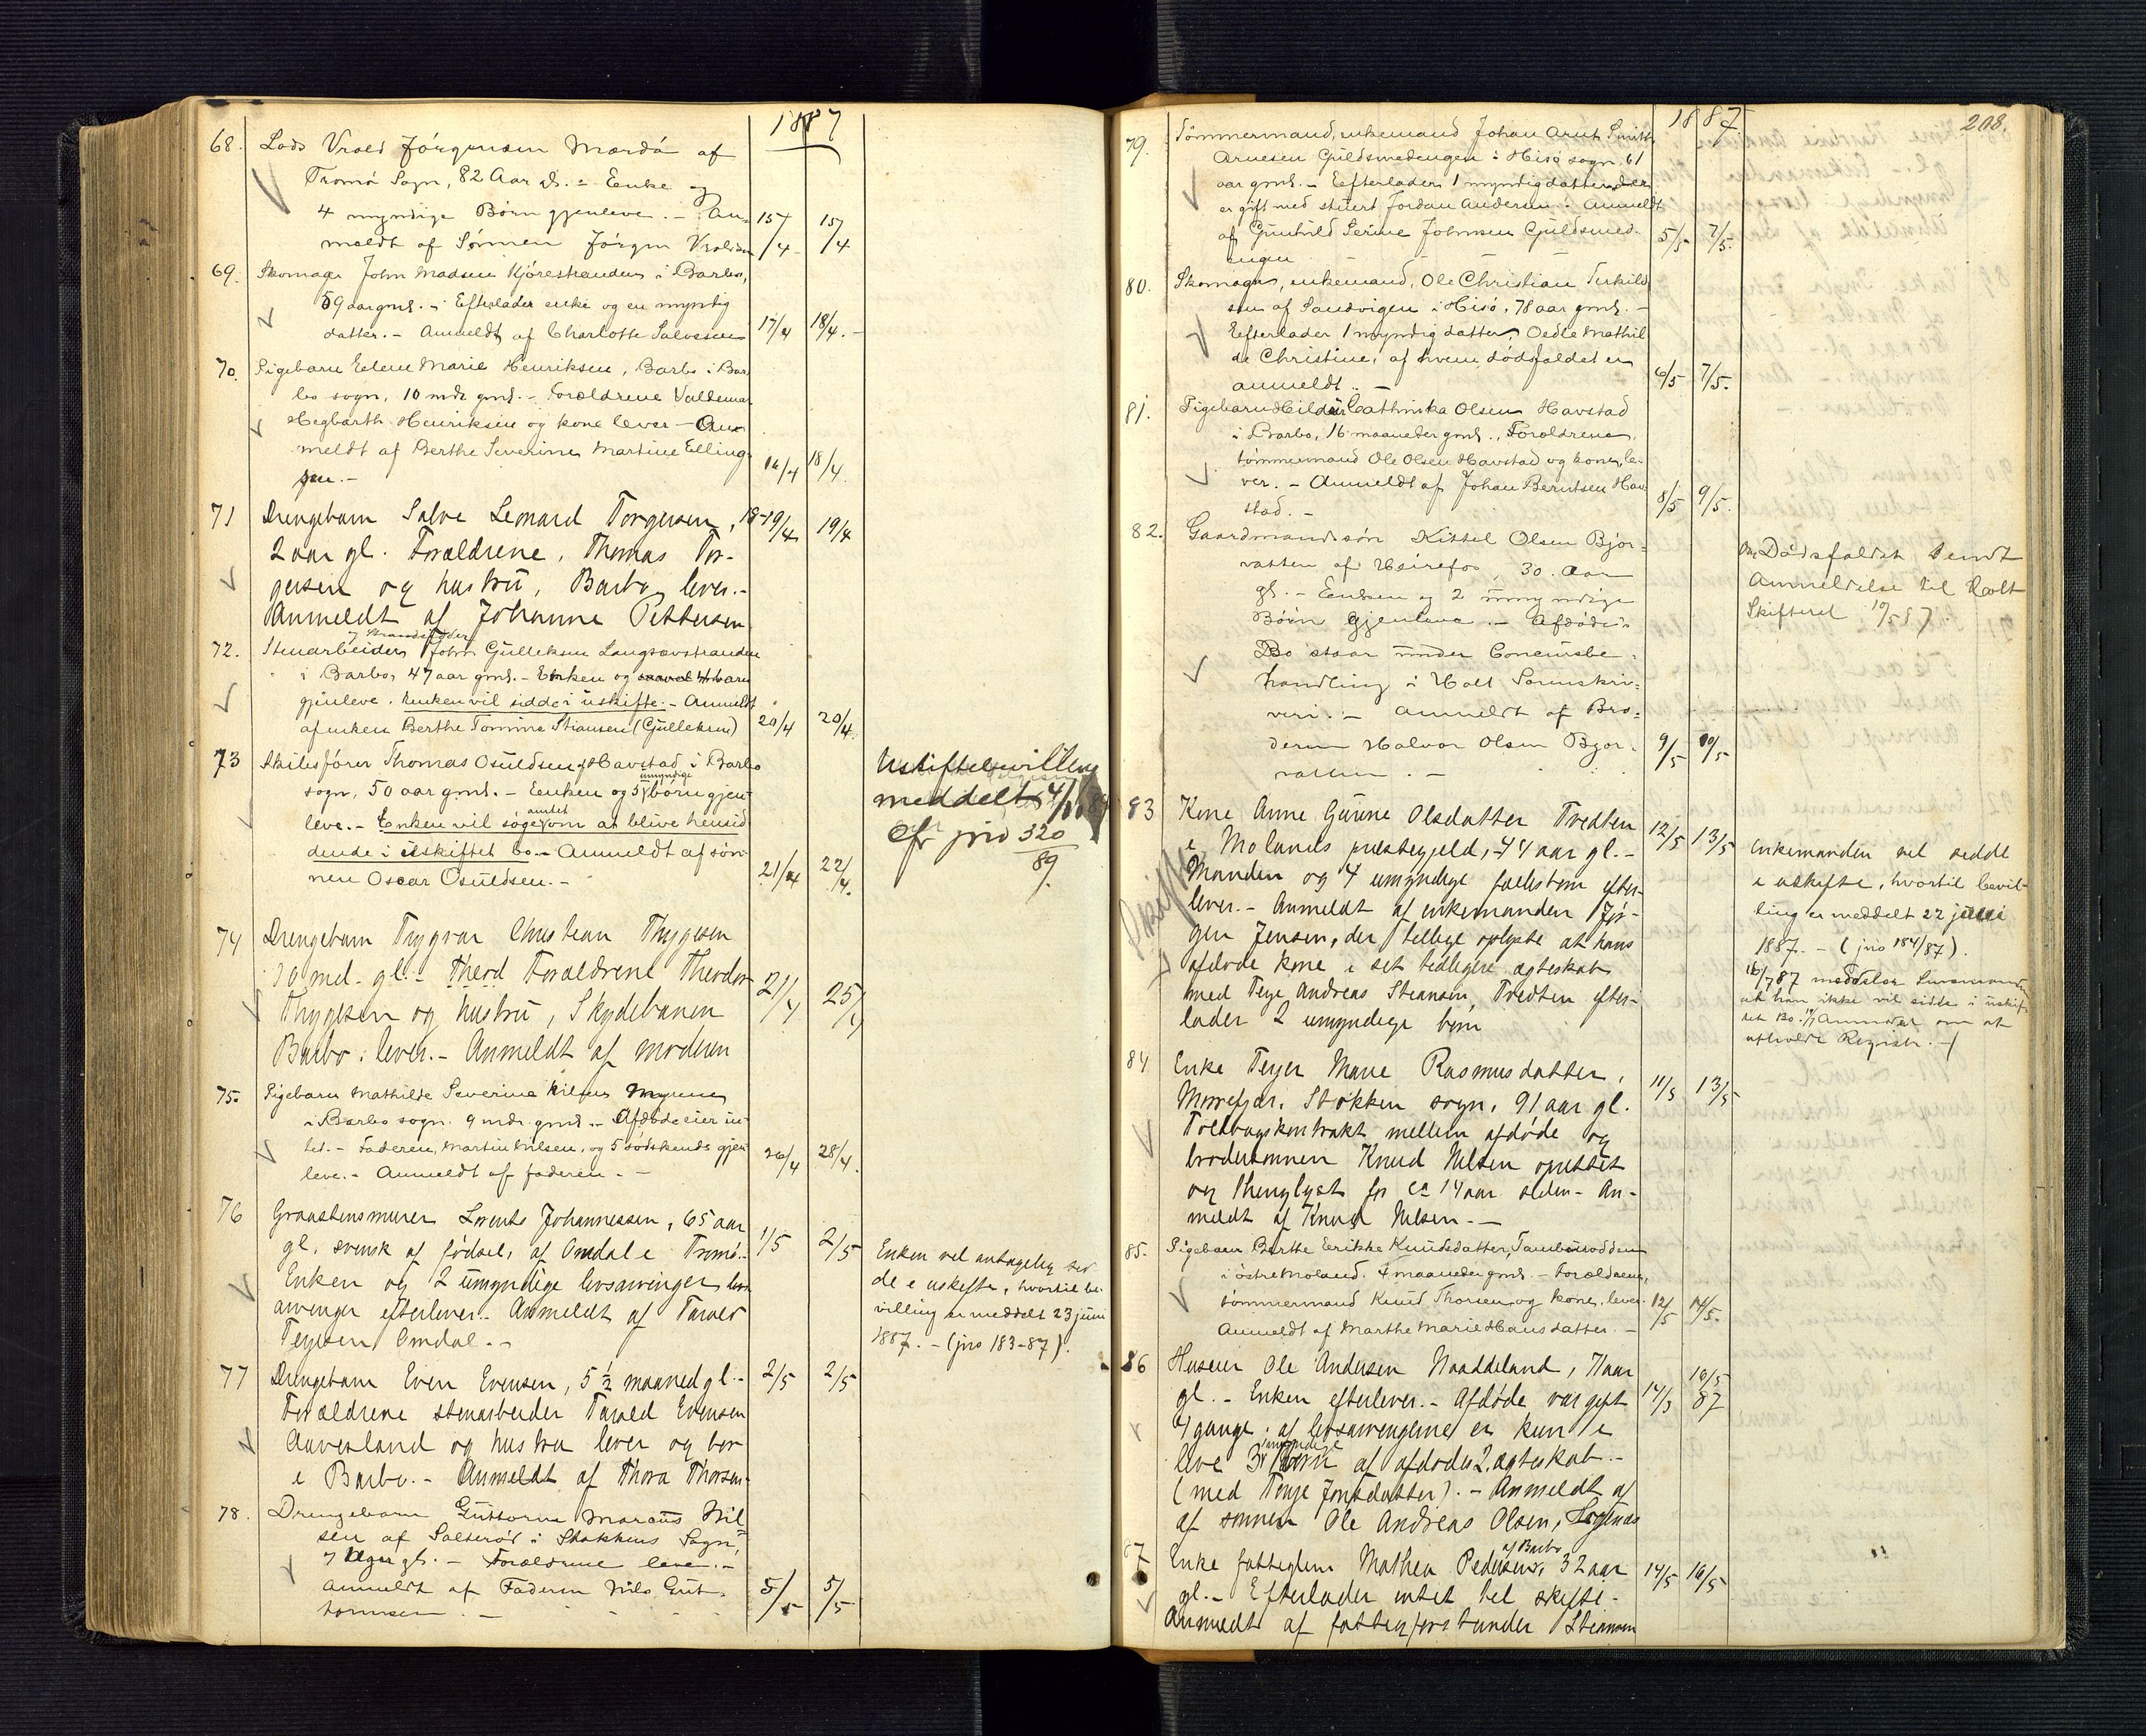 1887
68. Lods Vrold Jörgensen Mærdö af
Tromö Sogn, 82 Aar gl. - Enke og
4 myndige Børn gjenleve. - An-
meldt af Sönnen Jörgen Vroldsen
15/4 15/4
69. Skomager John Madsen Kjörestranden i Barbo,
59 aar gml. - Efterlader enke og en myndig
datter. - Anmeldt af Charlotte Salvesen
17/4 18/4. -
70. Pigebarn Helene Marie Henriksen, Barbo i Bar-
bo sogn, 10 mdr gml. - Forældrene Valdemar
Hegbarth Henriksen og kone lever - An-
meldt af Berthe Severine Martine Elling-
sen. -
16/4 18/4.
71 Drengebarn Salve Leonard Torgersen,
2 aar gl. Forældrene, Thomas Tor-
gersen og hustru, Barbo, lever. -
Anmeldt af Johanne Pettersen
18-19/4 19/4
72. Stenarbeider John Gulleksen Langsævstranden
i Barbo, 47 aar gml. - Enken og børn
gjenleve. Enken vil sidde i uskifte. - Anmeldt
af enken Berthe Tomine Stiansen (Gulleksen)
20/4 20/4.
73 Skibsfører Thomas Osuldsen af Havstad i Barbo
sogn, 50 aar gml. - Enken og 5 umyndige børn gjen-
leve. - Enken vil søge amtet om at blive hensid-
dende i uskiftet bo. - Anmeldt af søn-
nen Oscar Osuldsen. -
21/4 22/4.
Uskiftebevilling
meddelt
cfr jno 320/89.
74 Drengebarn Trygvar Christian Thygesen
10 md. gl. - Therd Forældrene Theodor
Thygesen og hustru, Skydebanen
Barbo, lever. - Anmeldt af moderen
21/4 25/4
75. Pigebarn Mathilde Severine Nilsen Myrene
i Barbo sogn. 9 mdr. gml. - Afdøde eier in-
tet. - Faderen, Martin Nilsen, og 5 sødskende gjen-
leve. - Anmeldt af faderen. -
26/4 28/4.
76 Graastensmurer Lorents Johannessen, 65 aar
gl. svensk af fødsel, af Omdal i Tromö. -
Enken og 2 umyndige livsarvinger livs
arvinger efterlever. - Anmeldt af Tarald
Terjesen Omdal. -
1/5 2/5
Enken vil antagelig sid-
de i uskifte, hvortil be-
villing er meddelt 23 juni
1887. - (jno 183-87).
77 Drengebarn Even Evensen, 5 1/2 maaned gl. -
Forældrene stenarbeider Tarald Evensen
Auvesland og hustru lever og bor
i Barbo. - Anmeldt af Thora Thorsen
2/5 2/5
78. Drengebarn Guttorm Marcus Nil-
sen af Salterød i Stokkens Sogn,
7 Uger gl. - Forældrene leve. -
Anmeldt af Faderen Nils Gut-
tormsen. -
5/5 5/5
1887
208.
79. Tömmermand, enkemand Johan Arnt Smith
Arnesen Guldsmedengen i Hisö sogn, 61
aar gml. - Efterlader 1 myndig datter, der
er gift med stuert Jordan Andersen. Anmeldt
af Gunhild Serine Johnsen Guldsmed-
engen
5/5 7/5.
80. Skomager, enkemand, Ole Christian Terkild-
sen af Sandvigen i Hisö, 78 aar gml. -
Efterlader 1 myndig datter, Oedle Mathil-
de Christine, af hvem dödsfaldet er
anmeldt. -
6/5 7/5.
81. Pigebarn Hilda Cathinka Olsen Havstad
i Barbo, 16 maaneder gml., Forældrene,
tömmermand Ole Olsen Havstad og kone, le-
ver. - Anmeldt af Johan Berntsen Hav-
stad. -
8/5 9/5.
82. Gaardmandssøn Kittel Olsen Bjor-
vatten af Heirefos, 30 Aar
gl. - Enken og 2 umyndige
Börn gjenleve. - Afdødes
Bo staar under Concursbe-
handling i Holt Sorenskri-
veri. - Anmeldt af Bro-
deren Halvor Olsen Bjor-
vatten. -
9/5 10/5
Om Dödsfaldet sendt
Anmeldelse til Holt
Skifteret 10/5 87.
83 Kone Anne Gurine Olsdatter Tredten
i Molands prestegjeld, 44 aar gl. -
Manden og 4 umyndige fællesbørn efter-
lever. - Anmeldt af enkemanden Jör-
gen Jensen, der tillige oplyste at hans
afdøde kone i sit tidligere ægteskab
med Terje Andreas Stiansen, Tredten efter-
lader 2 umyndige børn
Skifte
12/5 13/5
Enkemanden vil sidde
i uskifte, hvortil bevil-
ling er meddelt 22 juni
1887. - (jno 184/87).
16/7 87 meddeler Lensmanden
at han ikke vil sidde i uskif-
tet Bo. Anmodet om at
afholde Registr. -
84 Enke Terjer Marie Rasmusdatter,
Morefjær, Stokken sogn, 91 aar gl.
Föderaadskontrakt mellem afdøde og
brodersønnen Knud Nilsen oprettet
og thinglyst for ca 14 aar siden - An-
meldt af Knud Nilsen. -
11/5 13/5
85. Pigebarn Berthe Erikke Knudsdatter, Tambursodden
i östre Moland. 4 maaneder gml. - Forældrene,
tömmermand Knud Thorsen og kone, lever.
Anmeldt af Marthe Marie Hansdatter. -
12/5 14/5.
86 Huseier Ole Andersen Naaddeland, 71 aar
gl. - Enken efterlever. - Afdøde var gift
4 gange; af livsarvingerne er kun i
live 3 myndige børn af afdødes 2. ægteskab. -
(med Terje Jonsdatter). - Anmeldt af
af sønnen Ole Andreas Olsen,
14/5 16/5 87
87 Enke fattiglem Mathea Pedersen, af Barbo 32 aar
gl. - Efterlader intet til skifte. -
Anmeldt af fattigforstander Stiansen
14/5 16/5